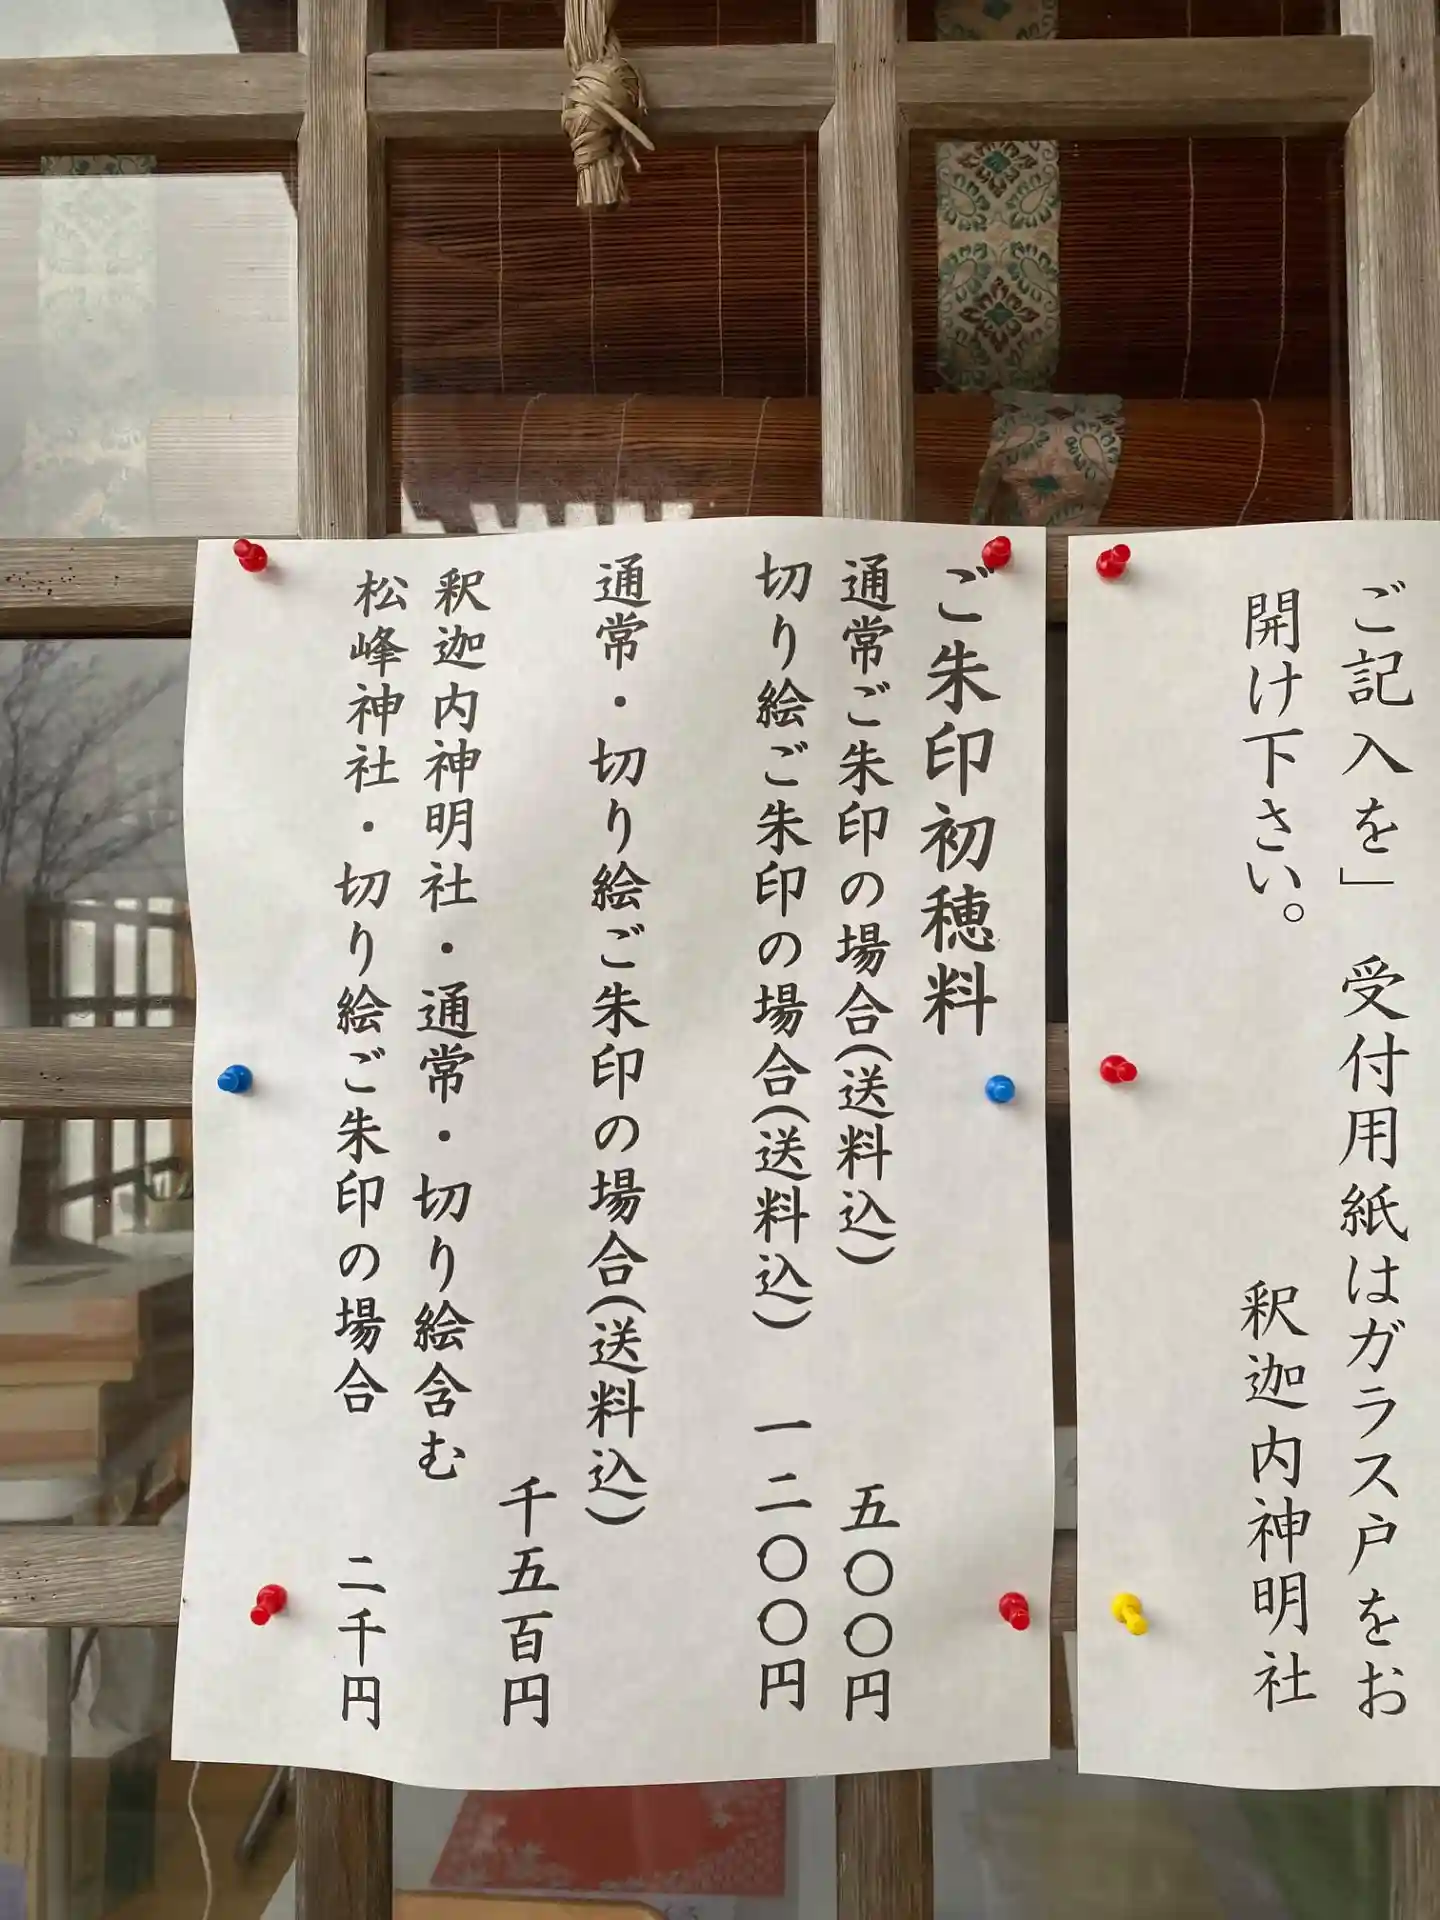 ご記入を」 受付用紙はガラス戸をお
開け下さい。
釈迦内神明社
ご朱印初穂料
通常ご朱印の場合(送料込) 五〇〇円
切り絵ご朱印の場合(送料込) 一二〇〇円
通常・切り絵ご朱印の場合(送料込)
千五百円
釈迦内神明社・通常・切り絵含む
松峰神社・切り絵ご朱印の場合 二千円